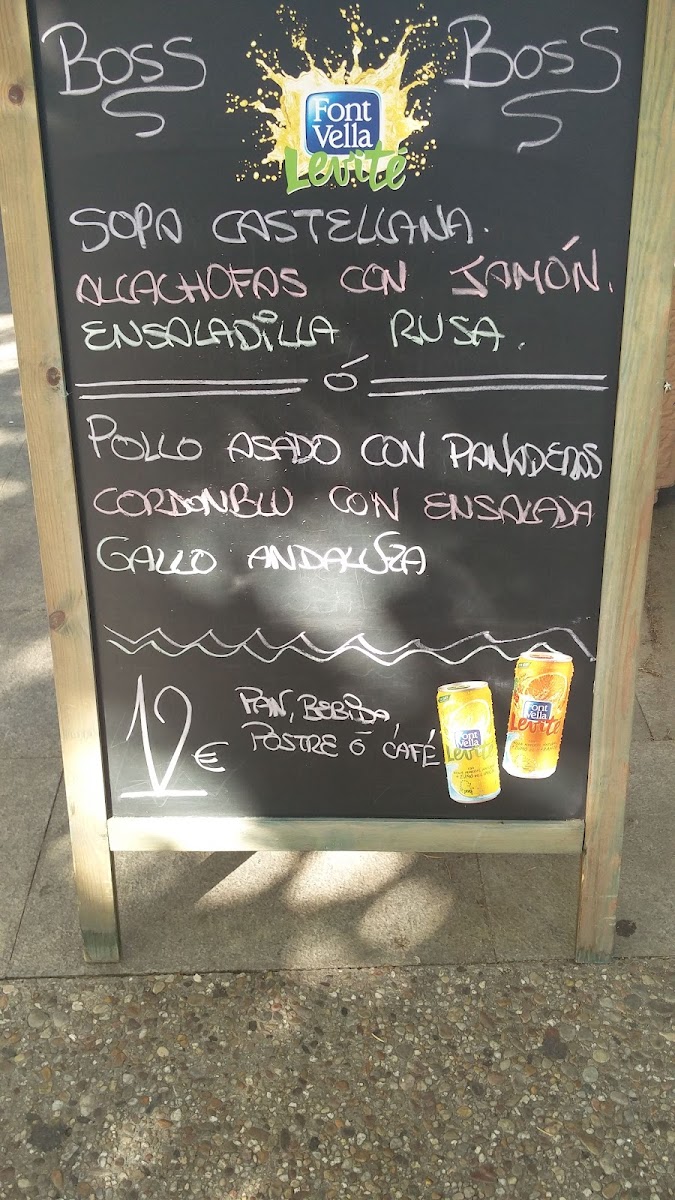 BOSS
Font Vella Levité
BOSS
SOPA CASTELLANA.
ALCACHOFAS CON JAMÓN.
ENSALADILLA RUSA.
Ó
POLLO ASADO CON PANADERAS
CORDONBLU CON ENSALADA
GALLO ANDALUZA
12€
PAN, BEBIDA,
POSTRE Ó CAFÉ
Font Vella Levité
Font Vella Levité